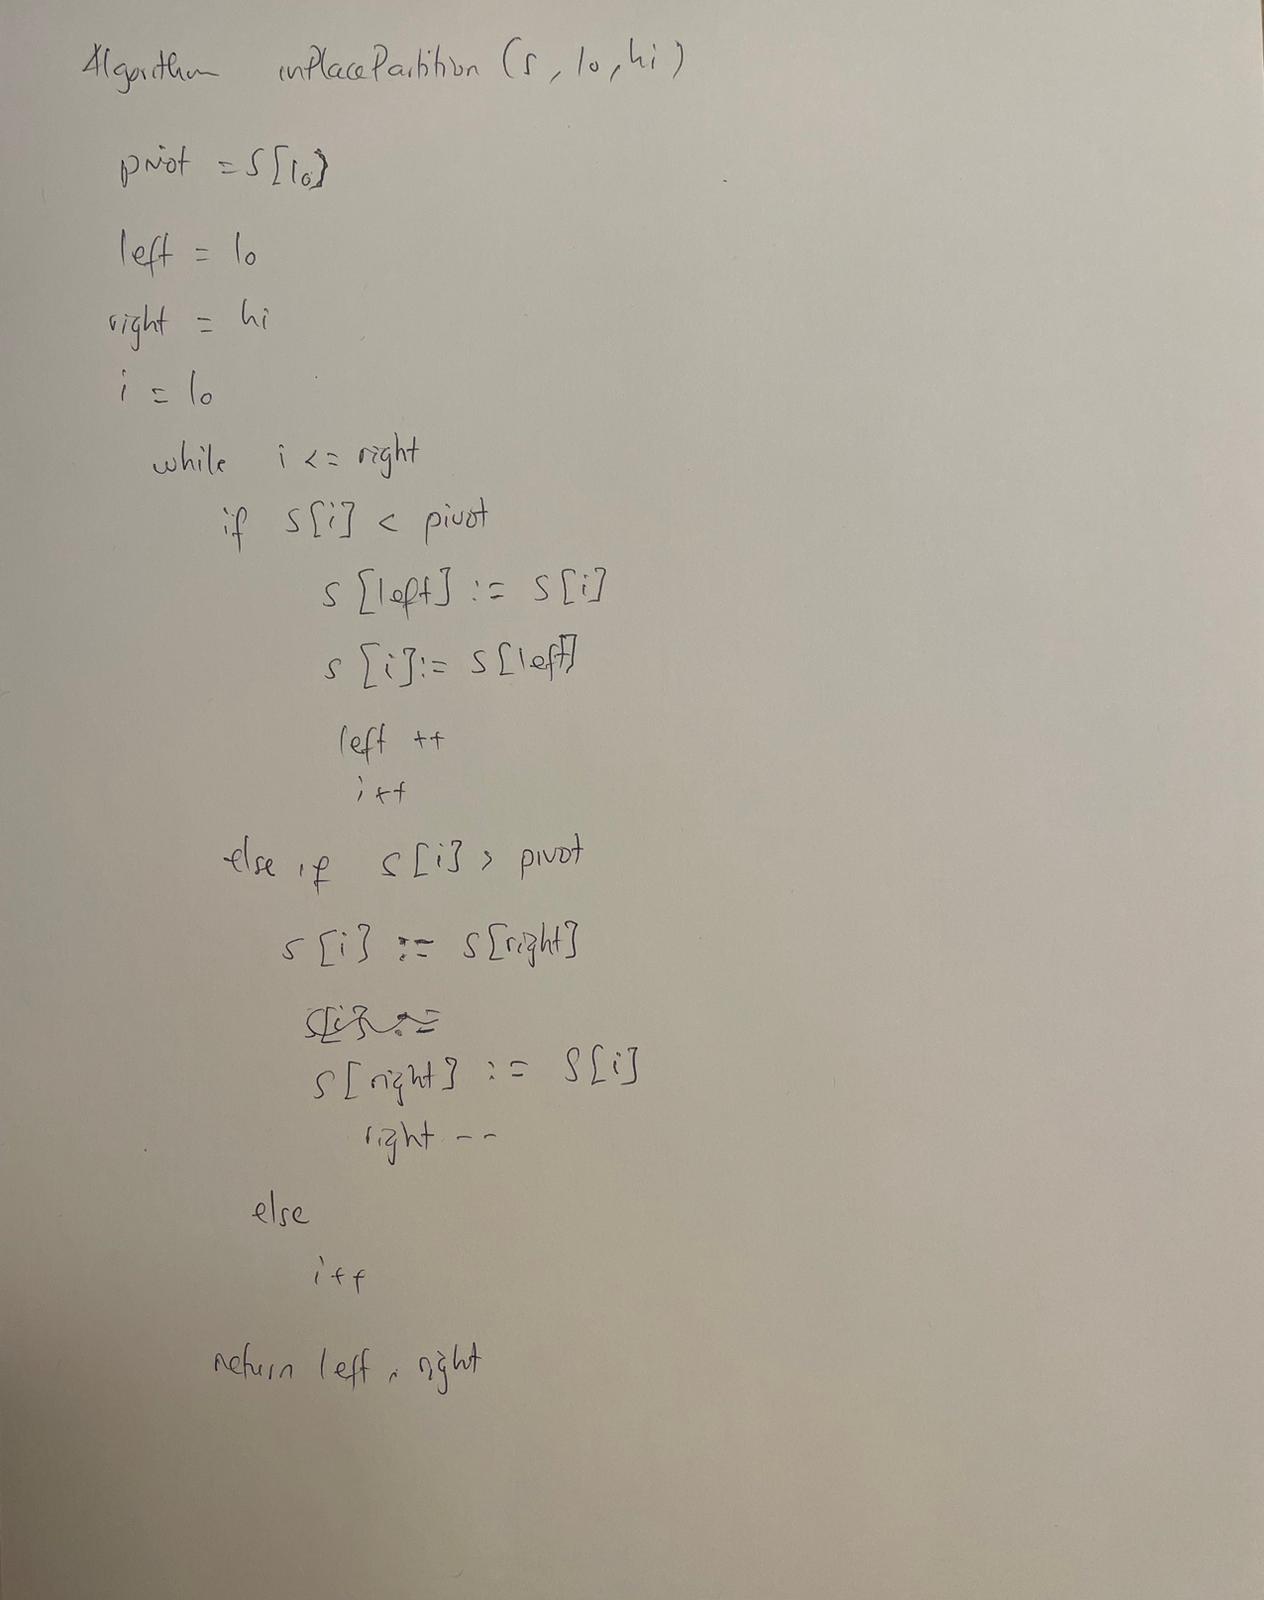 Algorithm inPlacePartition (S, lo, hi)
pivot = S[lo]
left = lo
right = hi
i = lo
while i <= right
if S[i] < pivot
S[left] := S[i]
S[i] := S[left]
left ++
i++
else if S[i] > pivot
S[i] := S[right]
S[right] := S[i]
right --
else
i++
return left, right